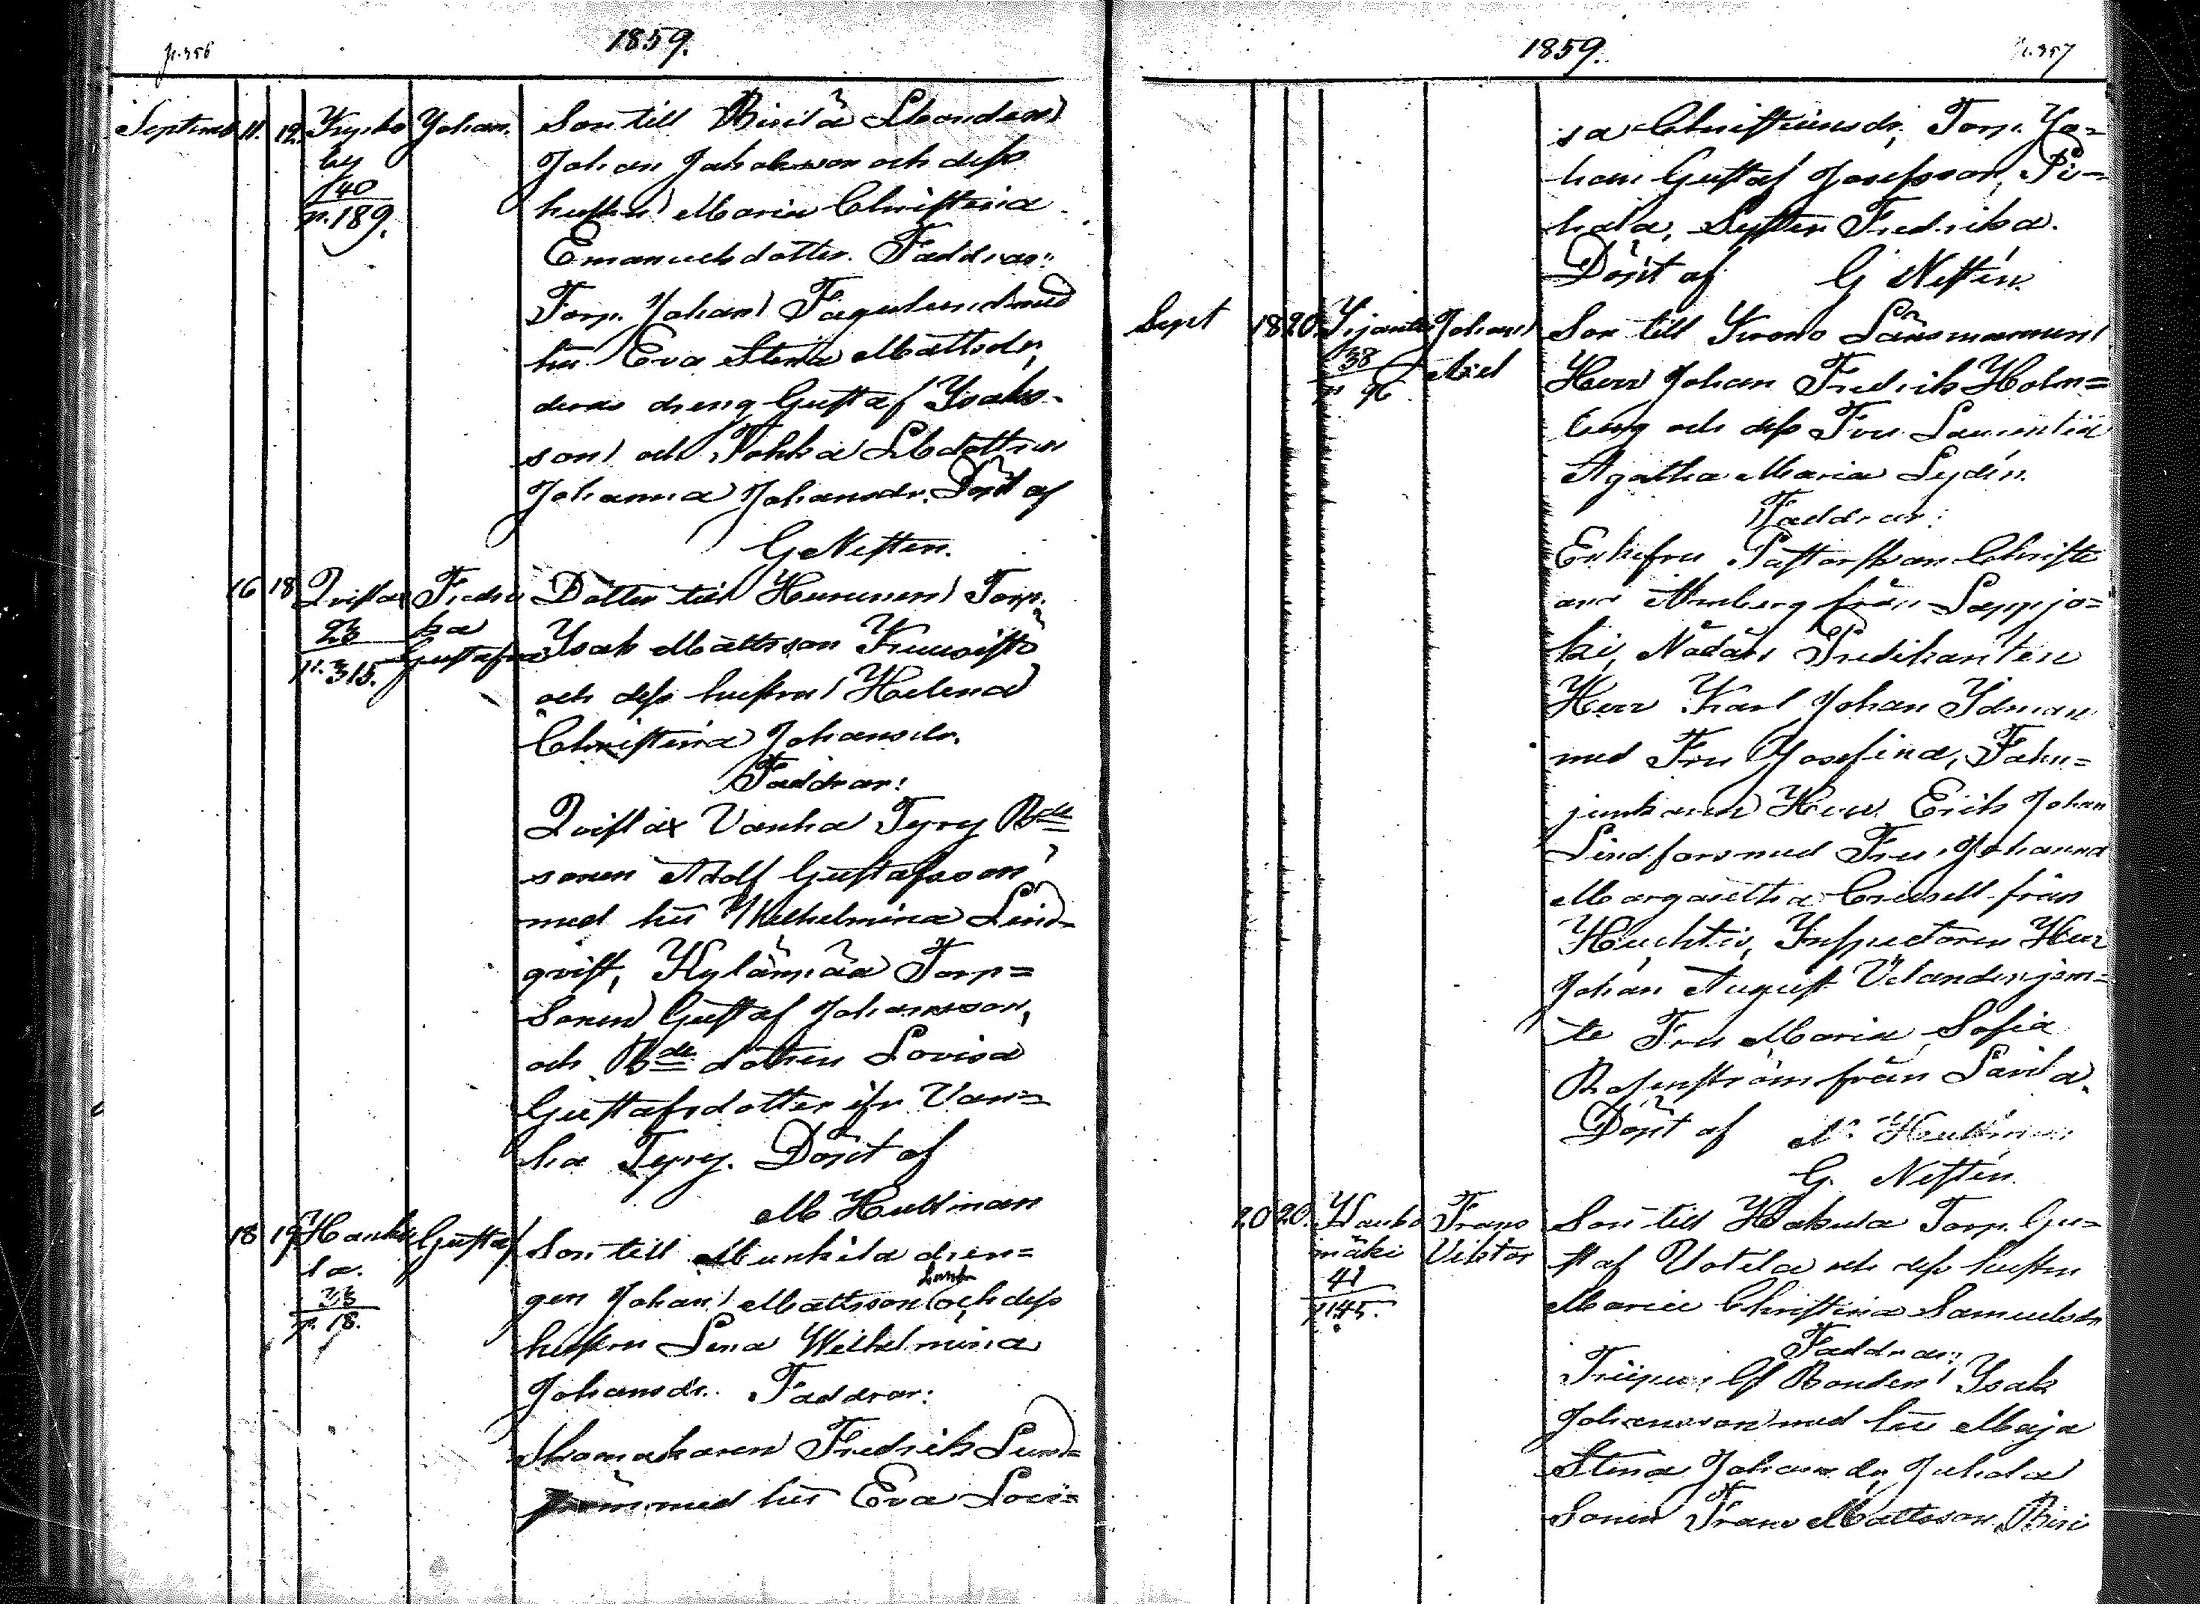 p. 356
1859.
Septemb. 11. 12. Krysko Johan. Son till Birilä Mbonden
by Johan Jakobsson och dess
140 hustru Maria Christina
p. 189. Emanuelsdotter. Faddrar:
Torp. Johan Fagerlund med
hu Eva Stina Mattsdr,
deras dreng Gustaf Isaks-
son och Tokka Mbdottren
Johanna Johansdr. Döpt af
G Nestén.
16 18 Qvistax Fredri Dotter till Humunen Torp.
23 ka Isak Mattsson
p. 315. Gustafva och dess hustru Helena
Christina Johansdr.
Faddrar:
Qvistax Vanha Tyry Bde
sonen Adolf Gustafsson
med hu Wilhelmina Lind-
qvist, Kylänpää Torp=
Sonen Gustaf Johansson,
och Bde dottren Lovisa
Gustafsdotter ifr Van=
ha Tyry. Döpt af
M Hultman
18 19 Hanhi Gustaf Son till Munkila dren=
la. gen Johan Mattsson och dess
33 hustru Lena Wilhelmina
p. 18. Johansdr. Faddrar:
Skomakaren Fredrik Lund=
ström med hu Eva Lovi=
p. 357
1859.
sa Christiansdr, Torp. Jo=
han Gustaf Josefsson, Pi=
hala, Syster Fredrika.
Döpt af G Nestén.
Sept 18 20. Johan Son till Krono Länsmannen
38 Axel Herr Johan Fredrik Holm=
p. 96 berg och dess Fru Laurentia
Agatha Maria Lydén.
Faddrar:
Enkefru Pastorskan Christi
ana Almberg från Lappjo=
ki, Nådårs Predikanten
Herr Karl Johan Idman
med Fru Josefina, Fahn=
junkaren Herr Erik Johan
Lindfors med Fru Johanna
Margaretha Crusell från
Huchtis, Inspectoren Herr
Johan August Velander jem=
te Fru Maria Sofia
Rosenström från Lavila.
Döpt af M Hultman
G. Nestén.
20 20. Hauko Frans Son till Hakula Torp. Gu=
mäki Viktor staf Uotila och dess hustru
41 Maria Christina Samuelsdr
p 145. Faddrar:
Bonden Isak
Johansson med hu Maja
Stina Johansdr, Juhola
Sonen Frans Mattsson, Biri